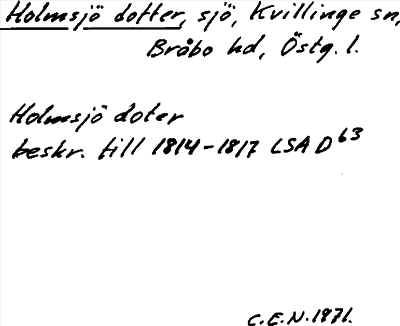 Holmsjö dotter, sjö, Kvillinge sn,
Bråbo hd, Östg. l.
Holmsjö doter
beskr. till 1814-1817 LSA D63
C.E.N. 1971.